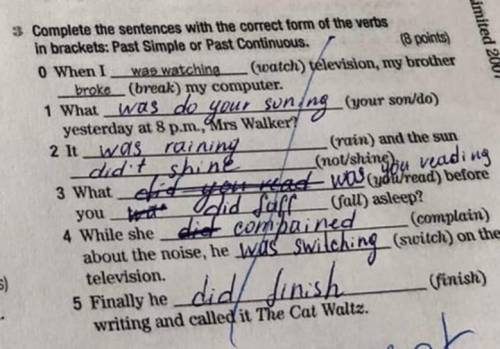 3 Complete the sentences with the correct form of the verbs
in brackets: Past Simple or Past Continuous. (8 points)
0 When I was watching (watch) television, my brother
broke (break) my computer.
1 What was do your suning (your son/do)
yesterday at 8 p.m., Mrs Walker?
2 It was raining (rain) and the sun
did't shine (not/shine)
3 What did you read was you reading (you/read) before
you was did faff (fall) asleep?
4 While she did compained (complain)
about the noise, he was switching (switch) on the
television.
5 Finally he did finish (finish)
writing and called it The Cat Waltz.
imited 2007